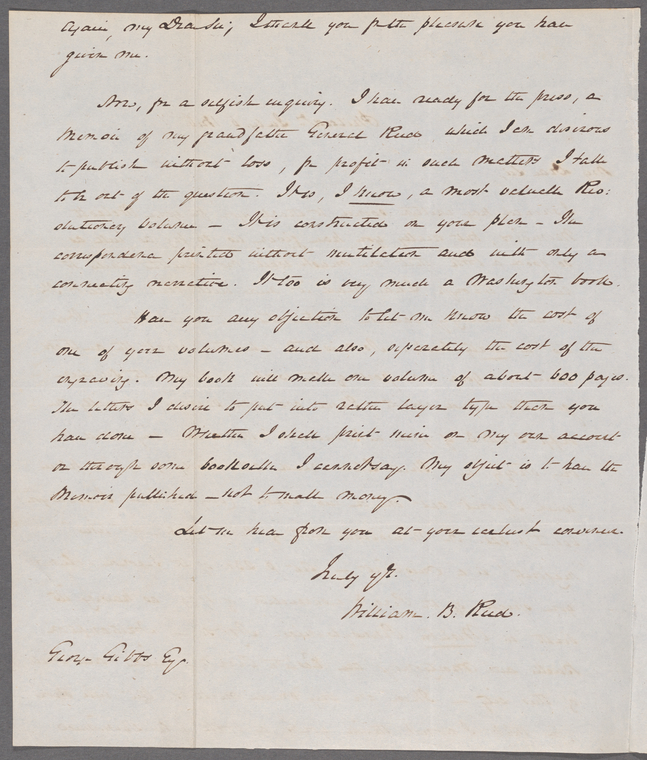 Again, my Dear Sir, I thank you for the pleasure you have
given me.
Now, for a selfish inquiry. I have ready for the press, a
Memoir of my grandfather General Reed which I am desirous
to publish without loss, for profit in such matters I take
to be out of the question. It is, I know, a most valuable Rev:
olutionary volume – It is constructed on your plan – The
correspondence printed without mutilation and with only a
connecting narrative. It too is very much a Washington book.
Have you any objection to let me know the cost of
one of your volumes – and also, separately the cost of the
engraving. My book will make one volume of about 600 pages.
The letters I desire to put into rather larger type than you
have done – Whether I shall print mine on my own account
or through some bookseller I cannot say. My object is to have the
Memoir published – not to make money.
Let me hear from you at your earliest convenience.
Truly yrs.
William. B. Reed.
George Gibbs Esq.